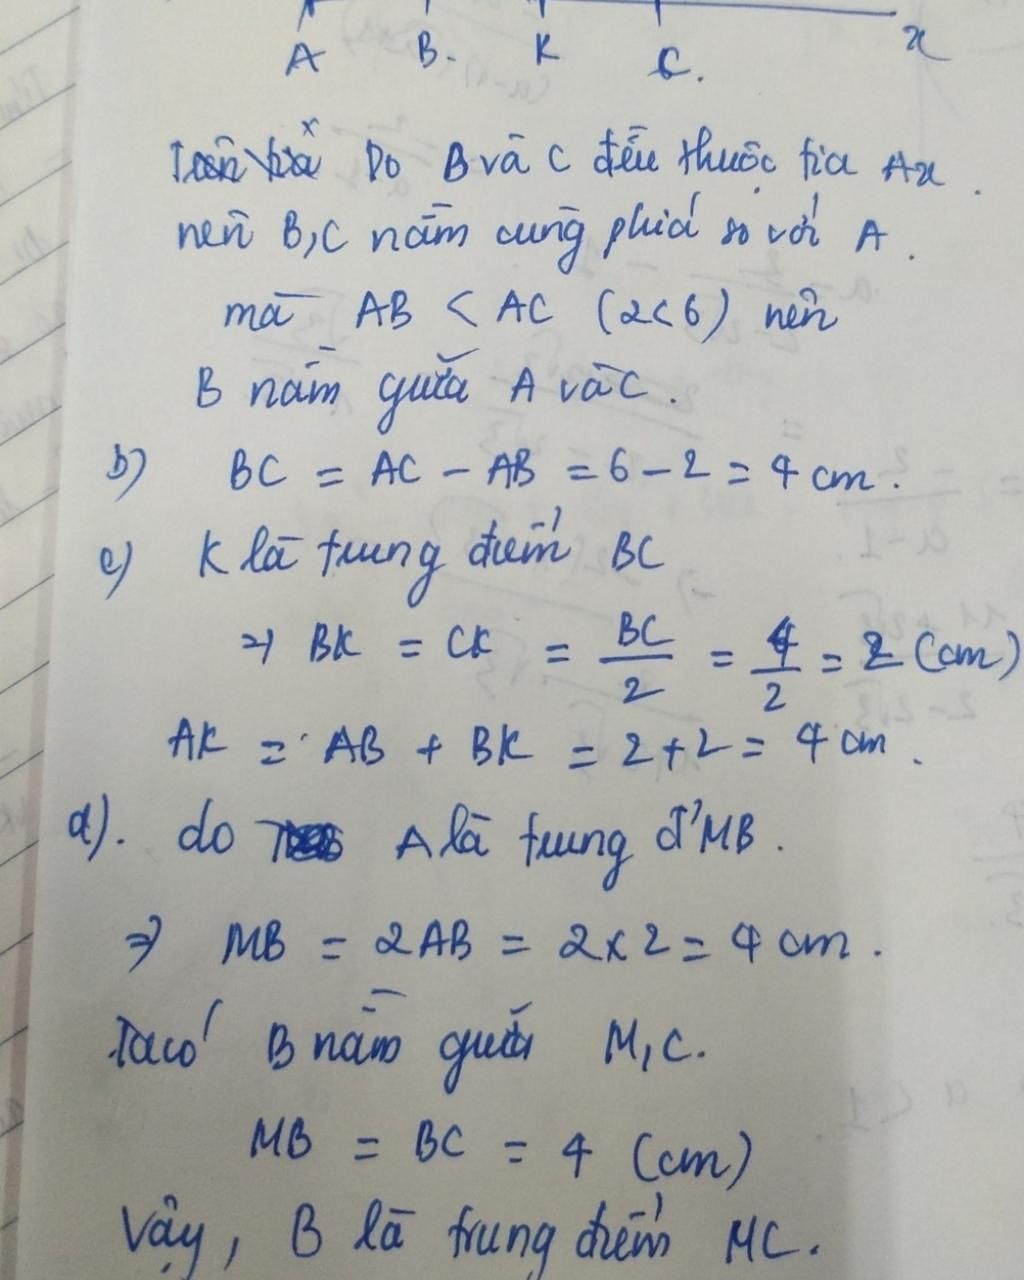 A B. K C. x
Do B và C đều thuộc tia Ax.
nên B, C nằm cùng phía so với A.
mà AB < AC (2<6) nên
B nằm giữa A và C.
b) BC = AC - AB = 6 - 2 = 4 cm.
c) K là trung điểm BC
=> BK = CK = BC/2 = 4/2 = 2 (cm)
AK = AB + BK = 2 + 2 = 4 cm.
d). do A là trung đ' MB.
=> MB = 2AB = 2 x 2 = 4 cm.
Ta có B nằm giữa M, C.
MB = BC = 4 (cm)
Vậy, B là trung điểm MC.